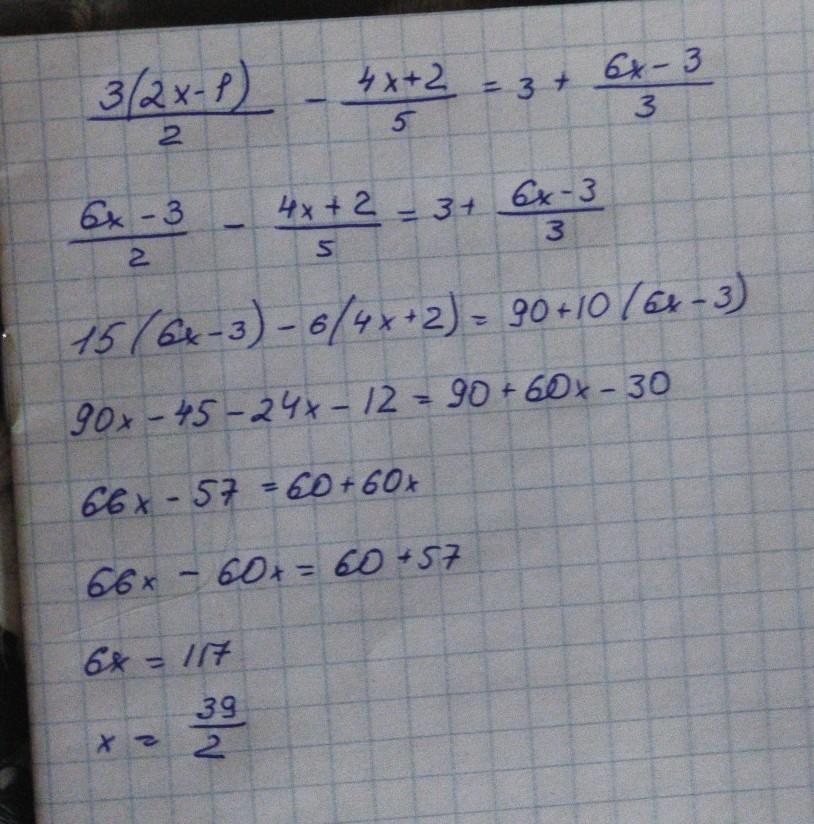 3(2x-1)/2 - 4x+2/5 = 3 + 6x-3/3
6x-3/2 - 4x+2/5 = 3+ 6x-3/3
15(6x-3)-6(4x+2)= 90+10(6x-3)
90x-45-24x-12=90+60x-30
66x-57=60+60x
66x-60x=60+57
6x=117
x= 39/2